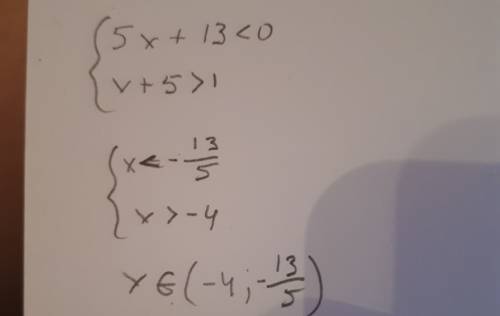 5x + 13 < 0
x + 5 > 1
x < -13/5
x > -4
x ∈ (-4; -13/5)